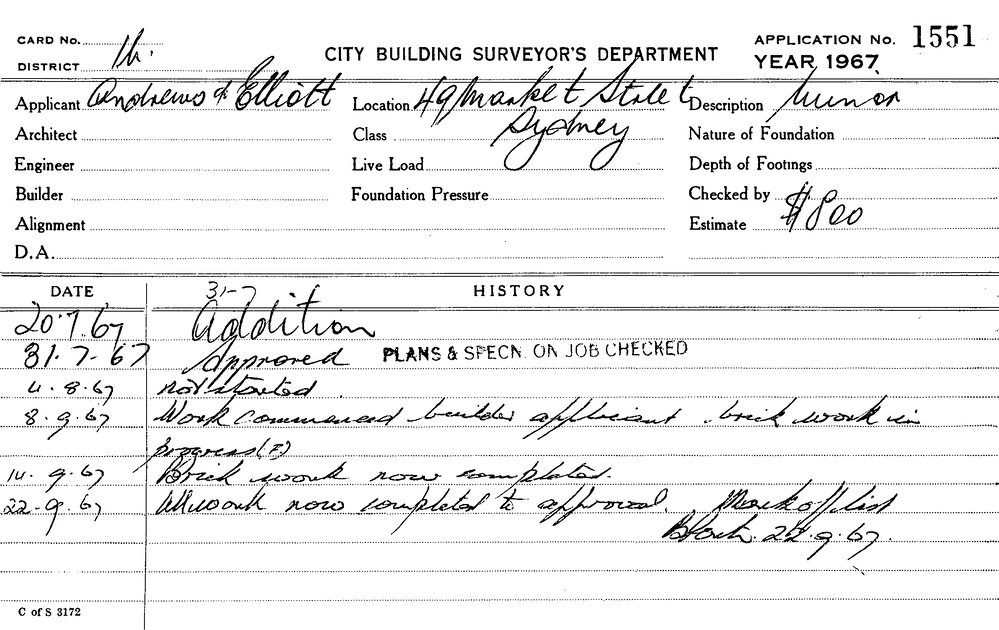 CARD No.
DISTRICT 1b.
CITY BUILDING SURVEYOR'S DEPARTMENT
APPLICATION No. 1551
YEAR 1967
Applicant Andrews & Elliott Location 49 Market Street Description Minor
Architect Class Sydney Nature of Foundation
Engineer Live Load Depth of Footings
Builder Foundation Pressure Checked by
Alignment Estimate $800
D.A.
DATE 31-7 HISTORY
20.7.67 Addition
31.7.67 Approved PLANS & SPECN. ON JOB CHECKED
4.8.67 not started.
8.9.67 Work commenced builder applicant. brick work in
progress (F)
14.9.67 Brick work now completed.
22.9.67 All work now completed to approval. Mark off list
22.9.67.
C of S 3172